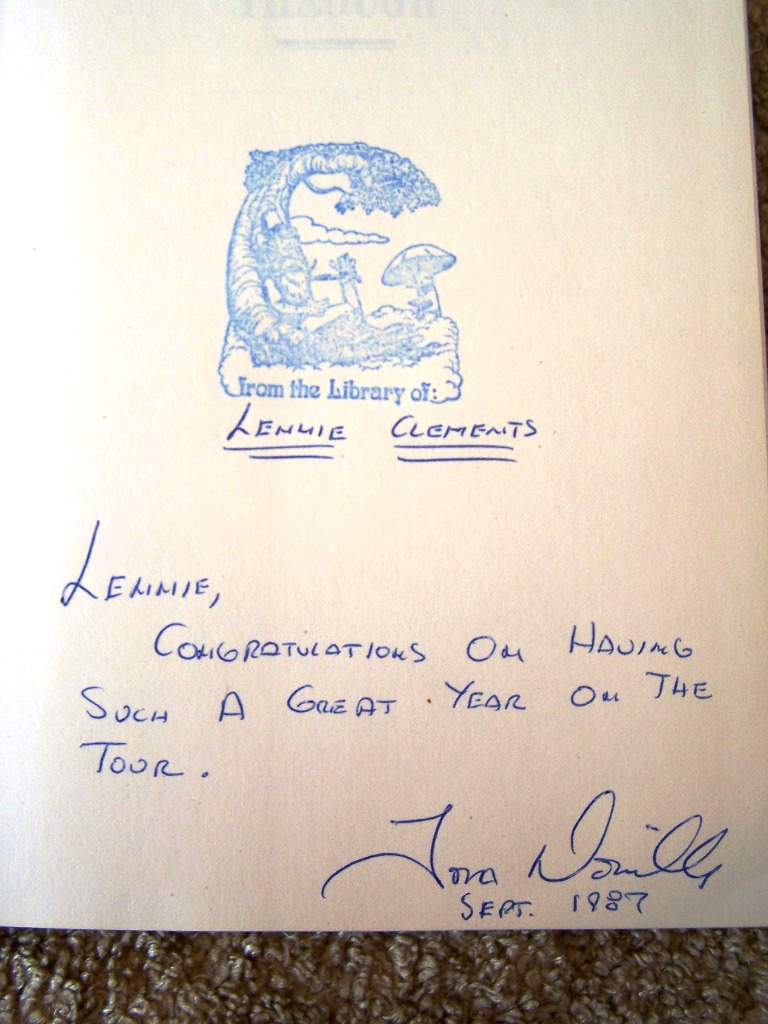 THROUGH
from the Library of:
LENNIE CLEMENTS
LENNIE,
CONGRATULATIONS ON HAVING
SUCH A GREAT YEAR ON THE
TOUR.
SEPT. 1987